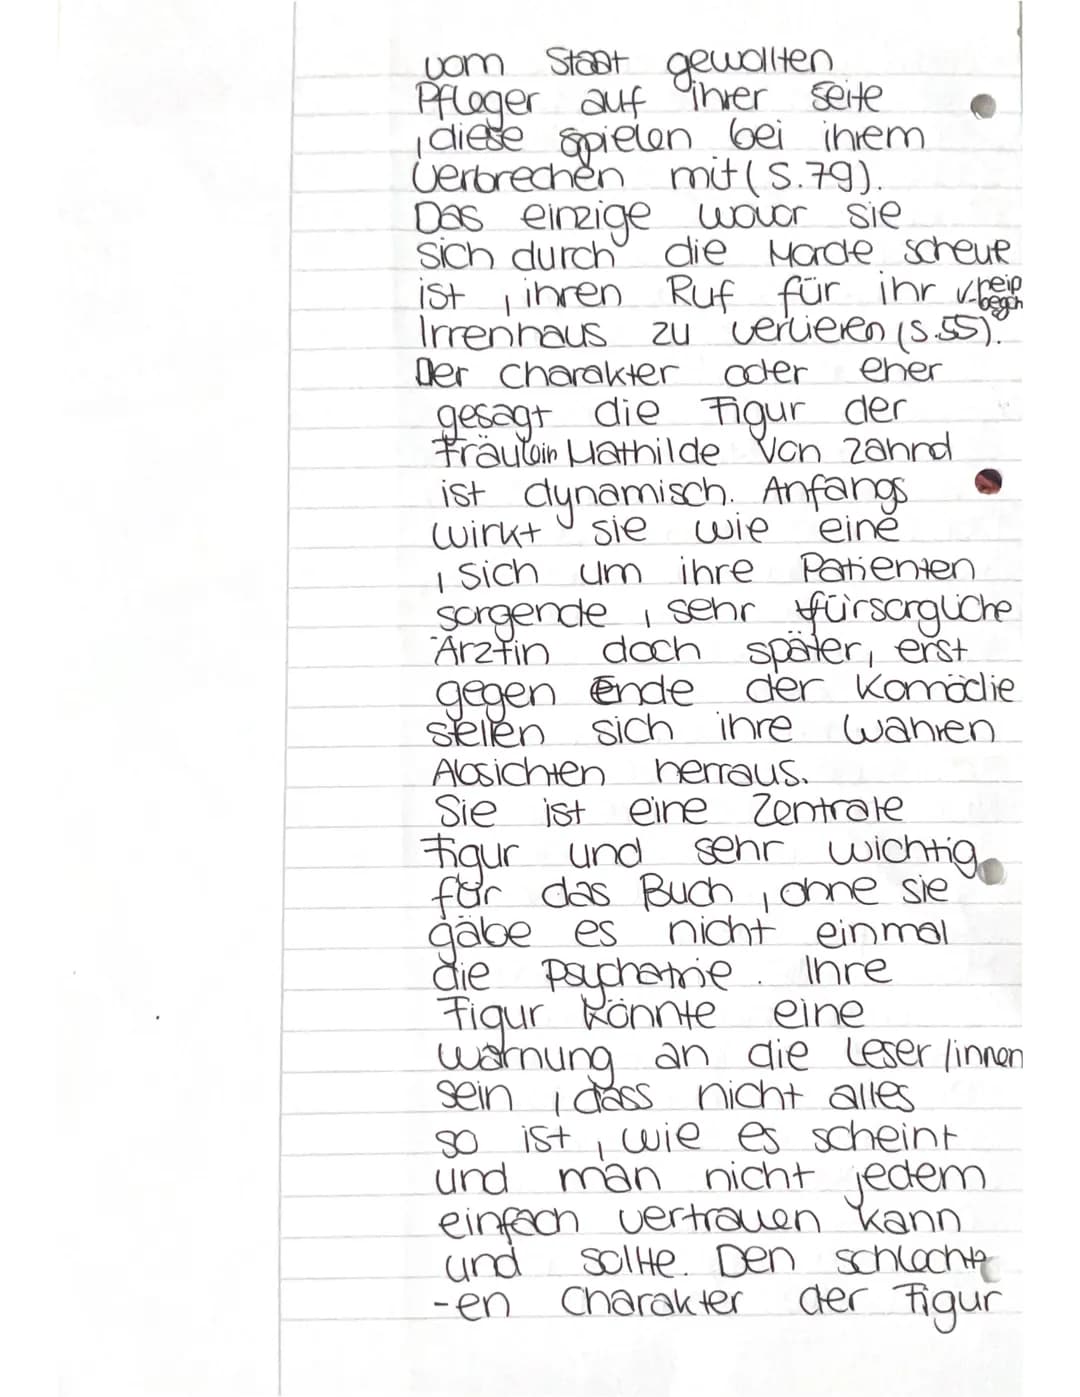 vom Staat gewollten
Pfleger auf ihrer Seite
, diese spielen bei ihrem
Verbrechen mit (S.79).
Das einzige wovor sie
sich durch die Morde scheut
ist , ihren Ruf für ihr
Irrenhaus zu verlieren (S.55).
Der Charakter oder eher
gesagt die Figur der
Fräulein Mathilde Von Zahnd
ist dynamisch. Anfangs
wirkt sie wie eine
, sich um ihre Patienten
sorgende , sehr fürsorgliche
Ärztin doch später, erst
gegen Ende der Komödie
stellen sich ihre wahren
Absichten herraus.
Sie ist eine Zentrale
Figur und sehr wichtig
für das Buch , ohne sie
gäbe es nicht einmal
die Psychatrie . Ihre
Figur könnte eine
warnung an die Leser/innen
sein , dass nicht alles
so ist , wie es scheint
und man nicht jedem
einfach vertrauen kann
und sollte. Den schlecht
-en Charakter der Figur